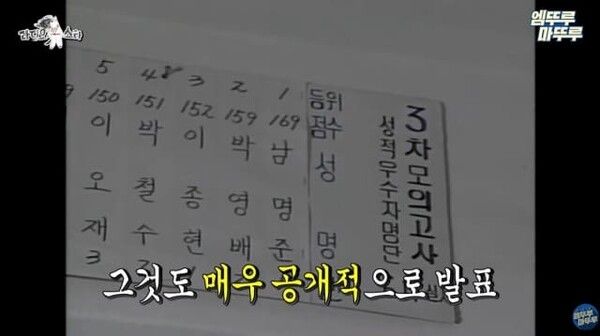 라디오스타
엠뚜루
마뚜루
3차모의고사
성적우수자명단
등위 점수 성명
1 169 남명준
2 159 박영배
3 152 이종현
4 151 박철수
5 150 이오재 3
그것도 매우 공개적으로 발표
엠뚜루
마뚜루